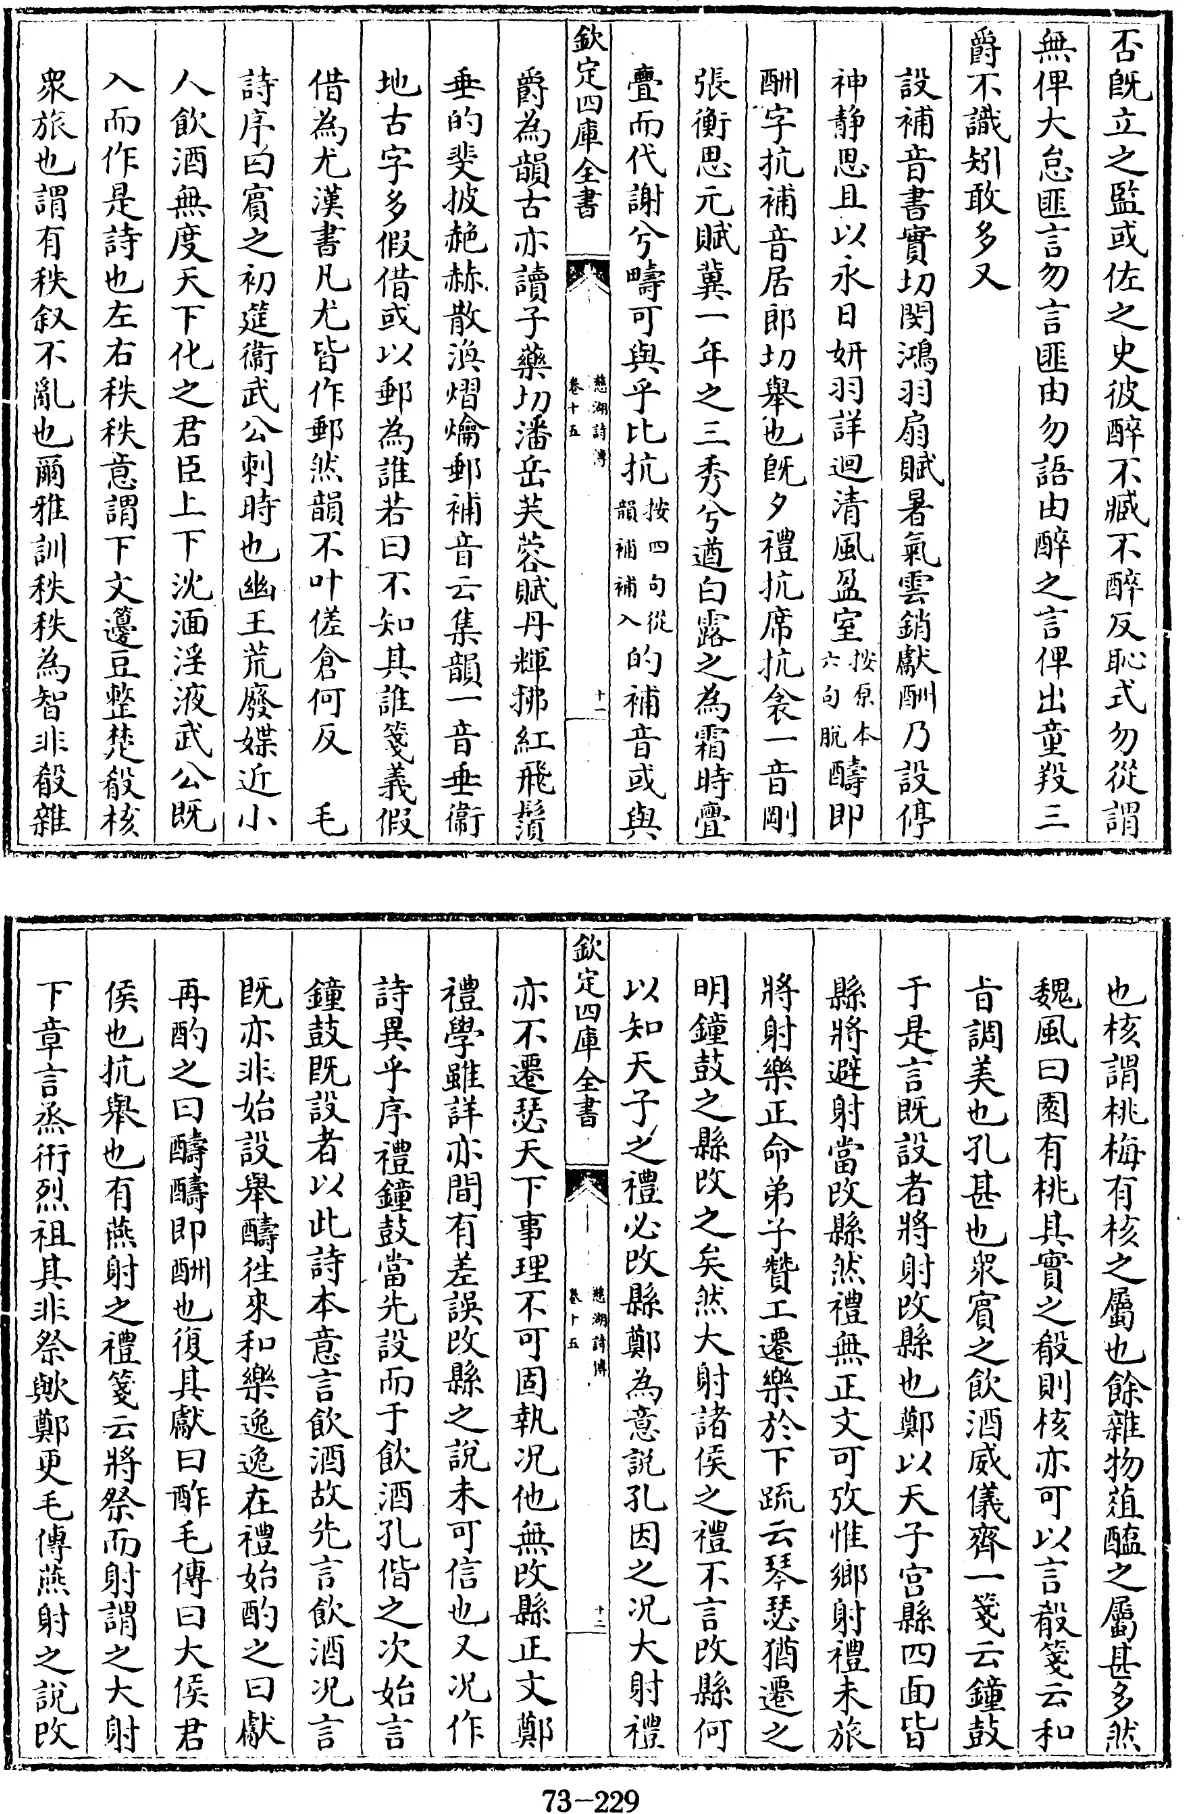 否旣立之監或佐之史彼醉不臧不醉反恥式勿從謂
無俾大怠匪言勿言匪由勿語由醉之言俾出童羖三
爵不識矧敢多又
設補音書實切閔鴻羽扇賦暑氣雲銷獻酬乃設停
神靜思且以永日妍羽詳迴清風盈室按原本六句脫醻即
酬字抗補音居郎切舉也旣夕禮抗席抗衾一音剛
張衡思元賦冀一年之三秀兮遒白露之為霜時亹
亹而代謝兮疇可與乎比抗按四句從韻補補入的補音或與
欽定四庫全書
慈湖詩傳
卷十五
十一
爵為韻古亦讀子藥切潘岳芙蓉賦丹輝拂紅飛鬚
垂的斐披赩赫散渙熠爚郵補音云集韻一音垂衞
地古字多假借或以郵為誰若曰不知其誰箋義假
借為尤漢書凡尤皆作郵然韻不叶傞倉何反 毛
詩序曰賓之初筵衞武公刺時也幽王荒廢媟近小
人飲酒無度天下化之君臣上下沈湎淫液武公既
入而作是詩也左右秩秩意謂下文籩豆整楚殽核
衆旅也謂有秩叙不亂也爾雅訓秩秩為智非殽雜
也核謂桃梅有核之屬也餘雜物葅醢之屬甚多然
魏風曰園有桃其實之殽則核亦可以言殽箋云和
旨調美也孔甚也衆賓之飲酒威儀齊一箋云鐘鼓
于是言既設者將射改縣也鄭以天子宮縣四面皆
縣將避射當改縣然禮無正文可攷惟鄉射禮未旅
將射樂正命弟子贊工遷樂於下疏云琴瑟猶遷之
明鐘鼓之縣改之矣然大射諸侯之禮不言改縣何
以知天子之禮必改縣鄭為意說孔因之况大射禮
欽定四庫全書
慈湖詩傳
卷十五
十二
亦不遷瑟天下事理不可固執况他無改縣正文鄭
禮學雖詳亦間有差誤改縣之說未可信也又况作
詩異乎序禮鐘鼓當先設而于飲酒孔偕之次始言
鐘鼓既設者以此詩本意言飲酒故先言飲酒况言
既亦非始設舉醻徃來和樂逸逸在禮始酌之曰獻
再酌之曰醻醻即酬也復其獻曰酢毛傳曰大侯君
侯也抗舉也有燕射之禮箋云將祭而射謂之大射
下章言烝衎烈祖其非祭歟鄭更毛傳燕射之說改
73-229